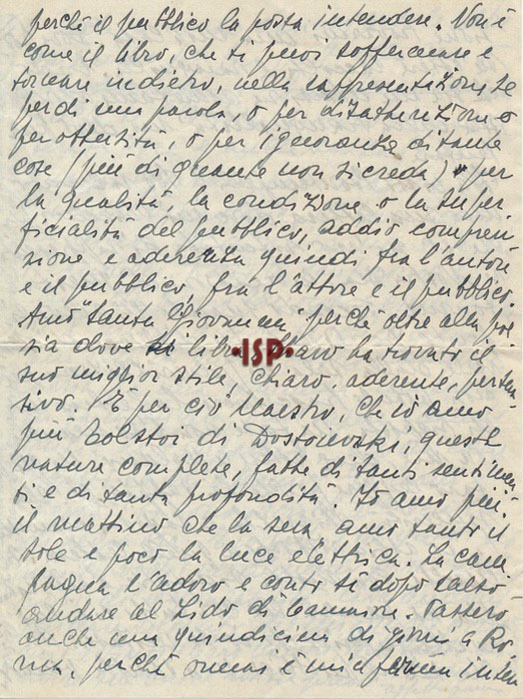 perchè il pubblico la possa intendere. Non è
come il libro, che ti puoi soffermare e
tornare indietro, nella rappresentazione se
perdi una parola, o per disattenzione o
per ottusità, o per ignoranza di tante
cose (più di quante non si creda) per
la qualità, la condizione o la super
ficialità del pubblico, addio compren
sione e aderenza quindi fra l'autore
e il pubblico, fra l'attore e il pubblico.
Amo "Santa Giovanna" perchè oltre alla poe
sia dove si libra, Shaw ha trovato il
suo miglior stile, chiaro, aderente, persua
sivo. È per ciò Maestro, che io amo
più Tolstoi di Dostoievski, queste
nature complete, fatte di tanti sentimen
ti e di tanta profondità. Io amo più
il mattino che la sera, amo tanto il
sole e poco la luce elettrica. La cam
pagna l'adoro e conto si dopo Salso
andare al Lido di Camaiore. Passerò
anche una quindicina di giorni a Ro
ma, perchè è mia inten
ISP